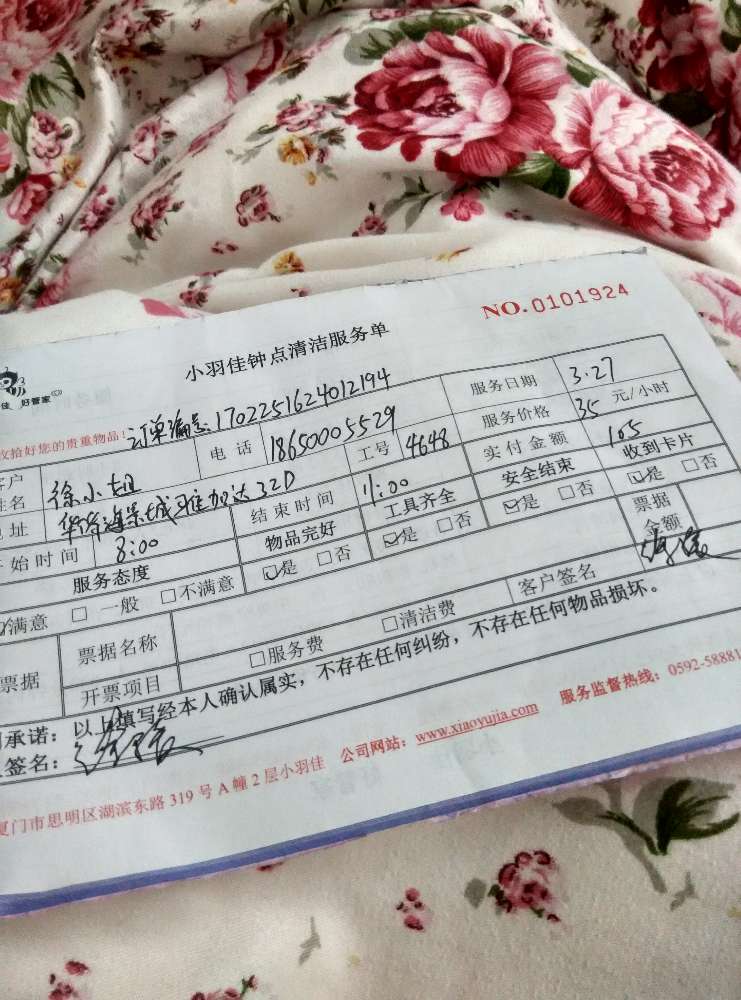 NO.0101924
小羽佳钟点清洁服务单
佳 好管家
收拾好您的贵重物品! 订单编号: 1702251624012194 服务日期 3.27
姓名 徐小姐 电话 18650005529 服务价格 35 元/小时
址 华侨海景城雅加达32D 工号 4648 实付金额 105
开始时间 8:00 结束时间 11:00 安全结束 收到卡片
服务态度 物品完好 工具齐全 是 否 是 否
满意 一般 不满意 是 否 是 否 票据金额
票据 票据名称 服务费 清洁费 客户签名
开票项目
承诺：以上填写经本人确认属实，不存在任何纠纷，不存在任何物品损坏。
签名：
厦门市思明区湖滨东路 319 号 A 幢 2 层小羽佳 公司网站：www.xiaoyujia.com 服务监督热线：0592-58881